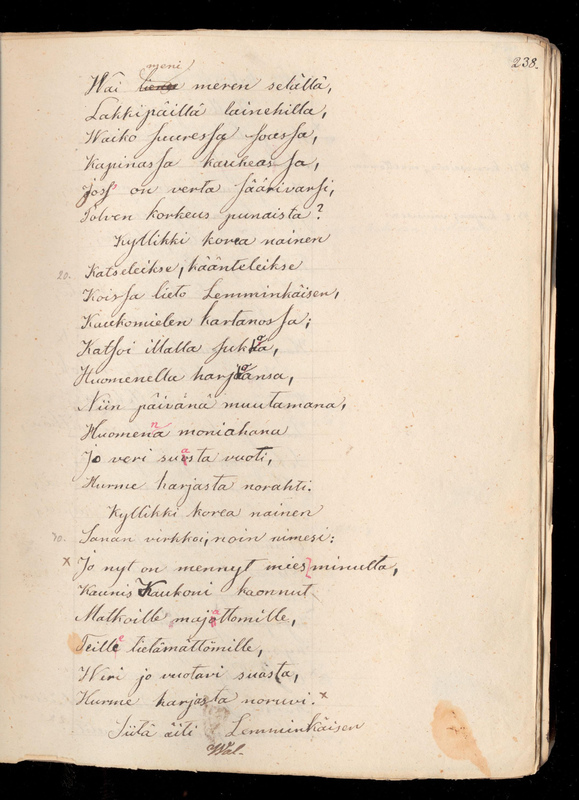 238.
meni
Wai lienee meren selällä,
Lakkipäillä lainehilla,
Waiko suuressa soassa,
Kapinassa kauheassa,
Joss' on verta säärivarsi,
Polven korkeus punaista?
Kyllikki korea nainen
20. Katseleikse, käänteleikse
Koissa lieto Lemminkäisen,
Kaukomielen kartanossa;
Katsoi illalla sukoa,
Huomenella harjoansa,
Niin päivänä muutamana,
Huomenna moniahana
Jo veri suasta vuoti,
Hurme harjasta norahti.
Kyllikki korea nainen
30. Sanan virkkoi, noin nimesi:
x Jo nyt on mennyt mies minulta,
Kaunis Kaukoni kaonnut
Matkoille majattomille,
Teille tietämättömille,
Weri jo vuotavi suasta,
Hurme harjasta noruvi. x
Siitä äiti Lemminkäisen
Wal-